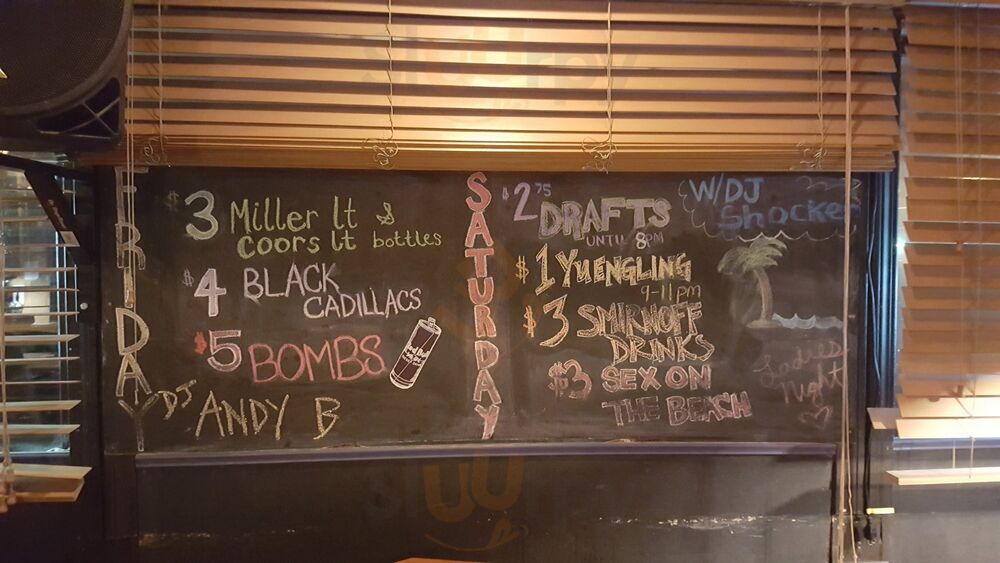 FRIDAY
$3 Miller lt &
coors lt bottles
$4 BLACK
CADILLACS
$5 BOMBS
DJ ANDY B
SATURDAY
$2.75 DRAFTS
UNTIL 8PM
$1 YUENGLING
9-11pm
$3 SMIRNOFF
DRINKS
$3 SEX ON
THE BEACH
W/DJ
Shocker
Ladies
Night